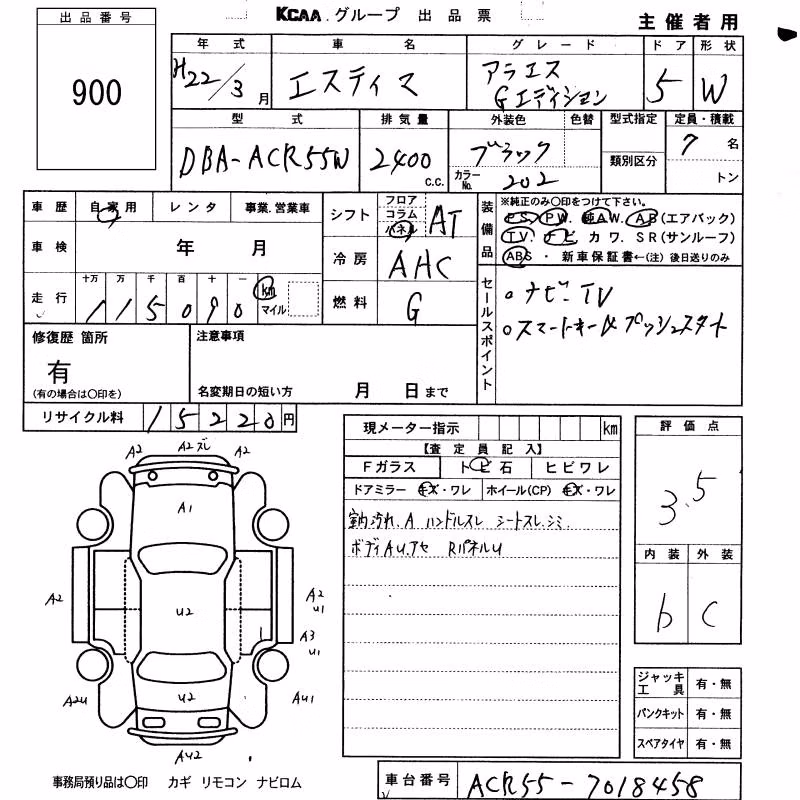 KCAA.グループ 出品票
主催者用
出品番号
900
年式 車名 グレード ドア 形状
H22/3月 エスティマ アエラス Gエディション 5 W
型式 排気量 外装色 色替 型式指定 定員・積載
DBA-ACR55W 2400 c.c. ブラック 7名
カラーNo. 202 類別区分 トン
車歴 自家用 レンタ 事業.営業車
車検 年 月
走行 十万 万 千 百 十 一 km マイル
115090
シフト フロア コラム パネル AT
冷房 AHC
燃料 G
装備品
※純正のみ〇印をつけて下さい。
PS. PW. 純AW. AB(エアバック)
TV. ナビ カワ. SR(サンルーフ)
ABS ・ 新車保証書←(注) 後日送りのみ
セールスポイント
○ナビ.TV
○スマートキー& プッシュスタート
修復歴 箇所
有
(有の場合は〇印を)
注意事項
名変期日の短い方 月 日まで
リサイクル料 15220円
現メーター指示 km
【査定員記入】
Fガラス トビ石 ヒビワレ
ドアミラー キズ・ワレ ホイール(CP) キズ・ワレ
室内汚れ.A ハンドルスレ シートスレ.シミ
ボディAU.アセ RパネルU
評価点
3.5
内装 外装
b C
ジャッキ工具 有・無
パンクキット 有・無
スペアタイヤ 有・無
A2 A2ズレ A2
A1
A2 U2 A2 U1
A3 U1
A2U U2 AU1
AU2
事務局預り品は〇印 カギ リモコン ナビロム
車台番号 ACR55-7018458